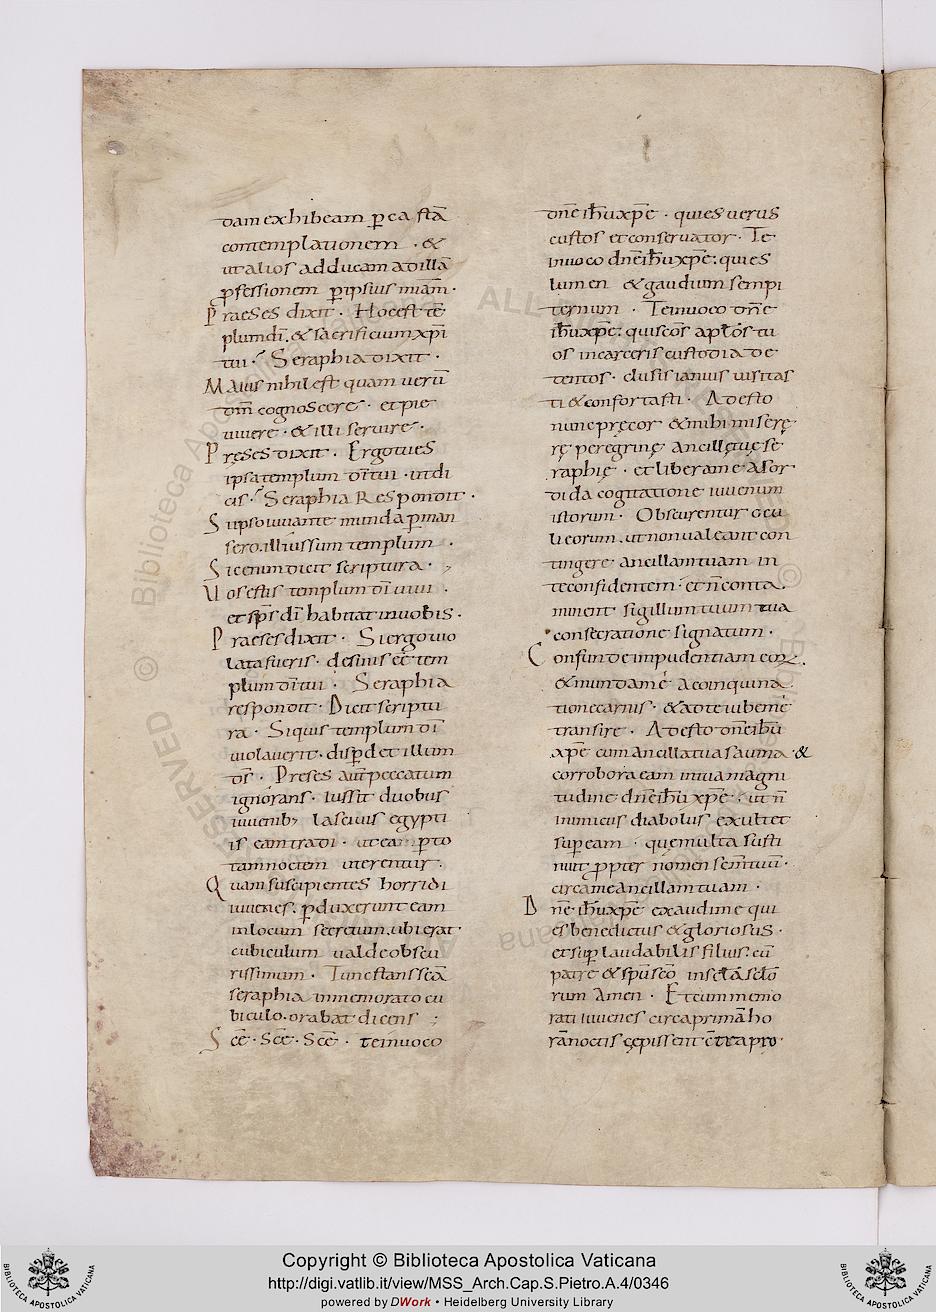 dam exhibeam p̱ ea stā
contemplationem · &
ut alios adducam ad illā
ꝓfessionem p̱ ipsius miam̄ ·
Praeses dixit · Hoc est tē
plum dī · & sacrificium xp̄i
tui · Seraphia dixit ·
Maius nihil est quam uerū
dm̄ cognoscere · et pie
uiuere · & illi seruire ·
Pręses dixit · Ergo tu es
ipsa templum dī tui · ut di
cis · Seraphia Respondit ·
Si ipso iuuante munda p̱man
sero · illius sum templum ·
Sic enim dicit scriptura ·
Uos estis templum dī uiui
et sps̄ dī habitat in uobis ·
Praeses dixit · Si ergo uio
lata fueris · desinis eē tem
plum dī tui · Seraphia
respondit · Dicit scriptu
ra · Siquis templum dī
uiolauerit · disp̱det illum
ds̄ · Preses aut̄ peccatum
ignorans · iussit duobus
iuuenib; lasciuis egypti
is eam tradi · ut ea imp̱to
tam noctem uterentur ·
Quam suscipientes horridi
iuuenes · ꝑduxerunt eam
in locum secretum · ubi erat ·
cubiculum ualde obscu
rissimum · Tunc stans scā
seraphia in memorato cu
biculo · orabat dicens ;
Scē · Scē · Scē · te inuoco
dn̄e ihū xpē · qui es uerus
custos et conseruator · Te
inuoco dn̄e ihū xpē · qui es
lumen & gaudium sempi
ternum · Te inuoco dn̄e
ihū xpē · qui scōs aplōs tu
os in carceris custodia de
tentos · clusis ianuis uisitas
ti & confortasti · Adesto
nunc pręcor & mihi miserę
rę peregrinę ancillę tuę se
raphię · et libera me a sor
dida cogitatione iuuenum
istorum · Obscurentur ocu
li eorum · ut non ualeant con
tingere ancillam tuam in
te confidentem · et n̄ conta
minent sigillum tuum tua
consecratione signatum ·
Confunde impudentiam eoꝝ ·
& munda me a coinquina
tione carnis · & ad te iube me
transire · Adesto dn̄e ihū
xpē cum ancilla tua sauina · &
corrobora eam in tua magni
tudine dn̄e ihū xpē · ut n̄
inimicus diabolus exultet
sup̱ eam · quę multa susti
nuit ꝓpter nomen scm̄ tuū ·
circa me ancillam tuam ·
Dn̄e ihū xpē exaudi me qui
es benedictus & gloriosus ·
et sup̱laudabilis filius · cū
patre & spū scō in sclā sclō
rum Amen · Et cum memo
rati iuuenes circa primā ho
rā noctis cępissent c̄tra pro
Copyright © Biblioteca Apostolica Vaticana
http://digi.vatlib.it/view/MSS_Arch.Cap.S.Pietro.A.4/0346
powered by DWork • Heidelberg University Library